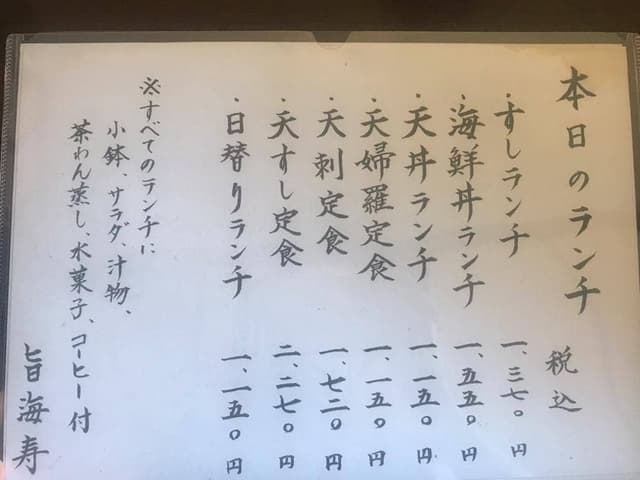 本日のランチ
税込
・すしランチ 一、三七〇円
・海鮮丼ランチ 一、五五〇円
・天丼ランチ 一、一五〇円
・天婦羅定食 一、一五〇円
・天刺定食 一、七二〇円
・天すし定食 二、二七〇円
・日替りランチ 一、一五〇円
※すべてのランチに
小鉢、サラダ、汁物、
茶わん蒸し、水菓子、コーヒー付
旨海寿